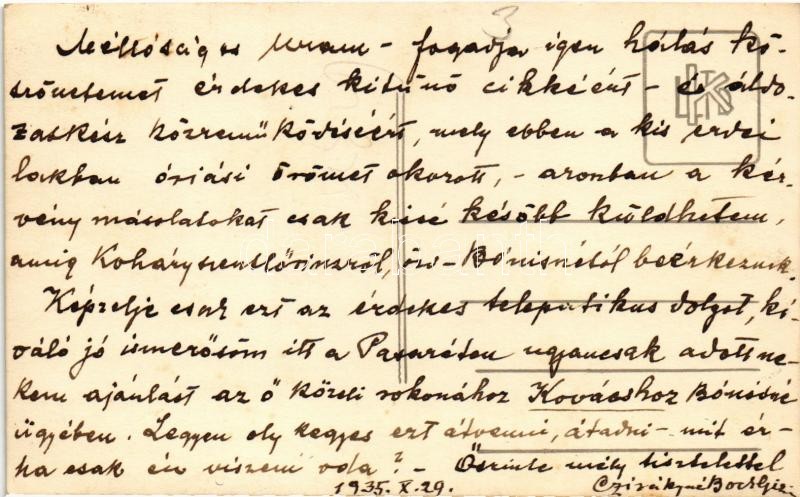 Méltóságos Uram – fogadja igen hálás kö-
szönetemet érdekes kitünő cikkéért – és áldo-
zatkész közreműködéséért, mely ebben a kis erdei
lakban óriási örömet okozott, – azonban a kér-
vény másolatokat csak kissé később küldhetem,
amig Koháryszentlőrinczről, özv – Bónisnétól beérkeznek.
Képzelje csak ezt az érdekes telepatikus dolgot, ki-
váló jó ismerősöm itt a Pasaréten ugyancsak adott ne-
kem ajánlást az ő közeli rokonához Kovácshoz Bónisné
ügyében. Legyen oly kegyes ezt átvenni, átadni – mit ér-
ha csak én viszem oda? – Őszinte mély tisztelettel
1935. X. 29.